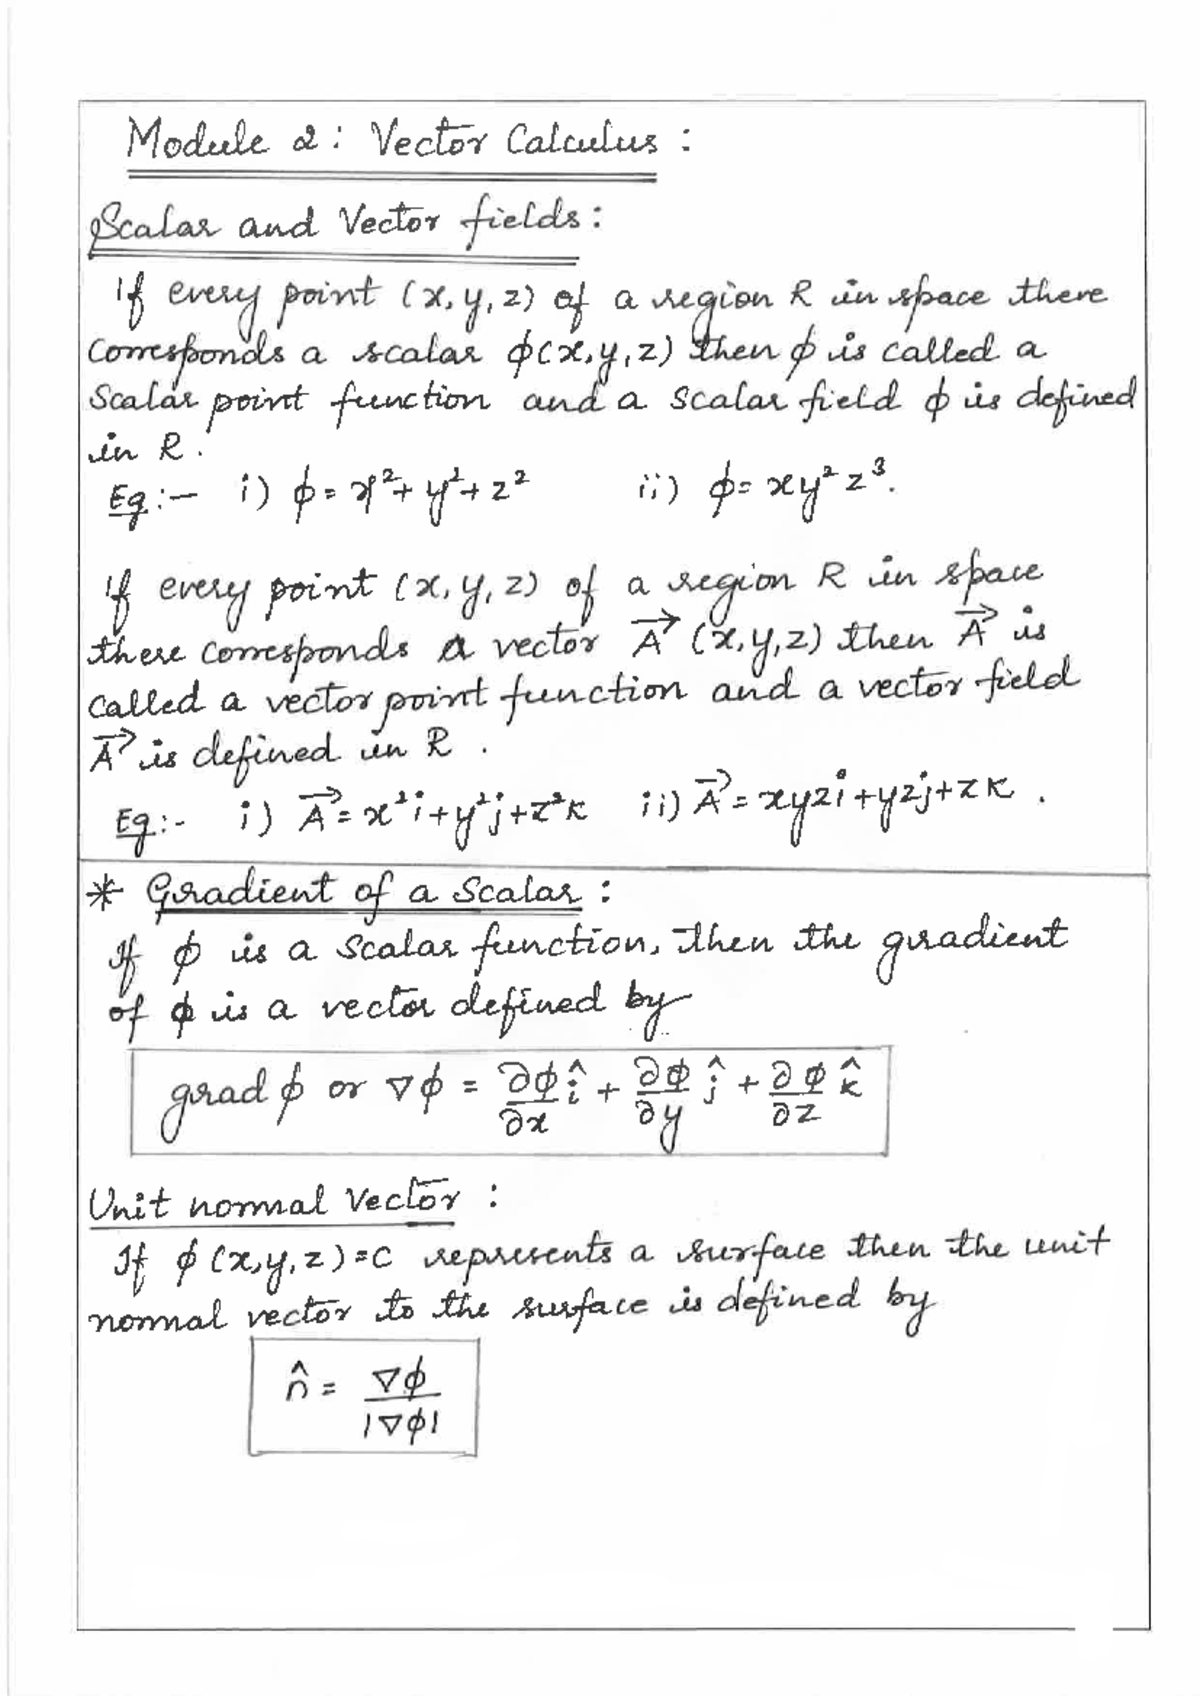 Module 2 : Vector Calculus :
Scalar and Vector fields :
If every point (x, y, z) of a region R in space there
corresponds a scalar ϕ(x, y, z) then ϕ is called a
Scalar point function and a scalar field ϕ is defined
in R.
Eg :- i) ϕ = x² + y² + z² ii) ϕ = xy² z³.
If every point (x, y, z) of a region R in space
there corresponds a vector A⃗ (x, y, z) then A⃗ is
called a vector point function and a vector field
A⃗ is defined in R .
Eg :- i) A⃗ = x²i + y²j + z²k ii) A⃗ = xyzi + yzj + zk .
* Gradient of a Scalar :
If ϕ is a scalar function, then the gradient
of ϕ is a vector defined by
grad ϕ or ∇ϕ = ∂ϕ/∂x î + ∂ϕ/∂y ĵ + ∂ϕ/∂z k̂
Unit normal Vector :
If ϕ (x, y, z) = C represents a surface then the unit
normal vector to the surface is defined by
n̂ = ∇ϕ / |∇ϕ|